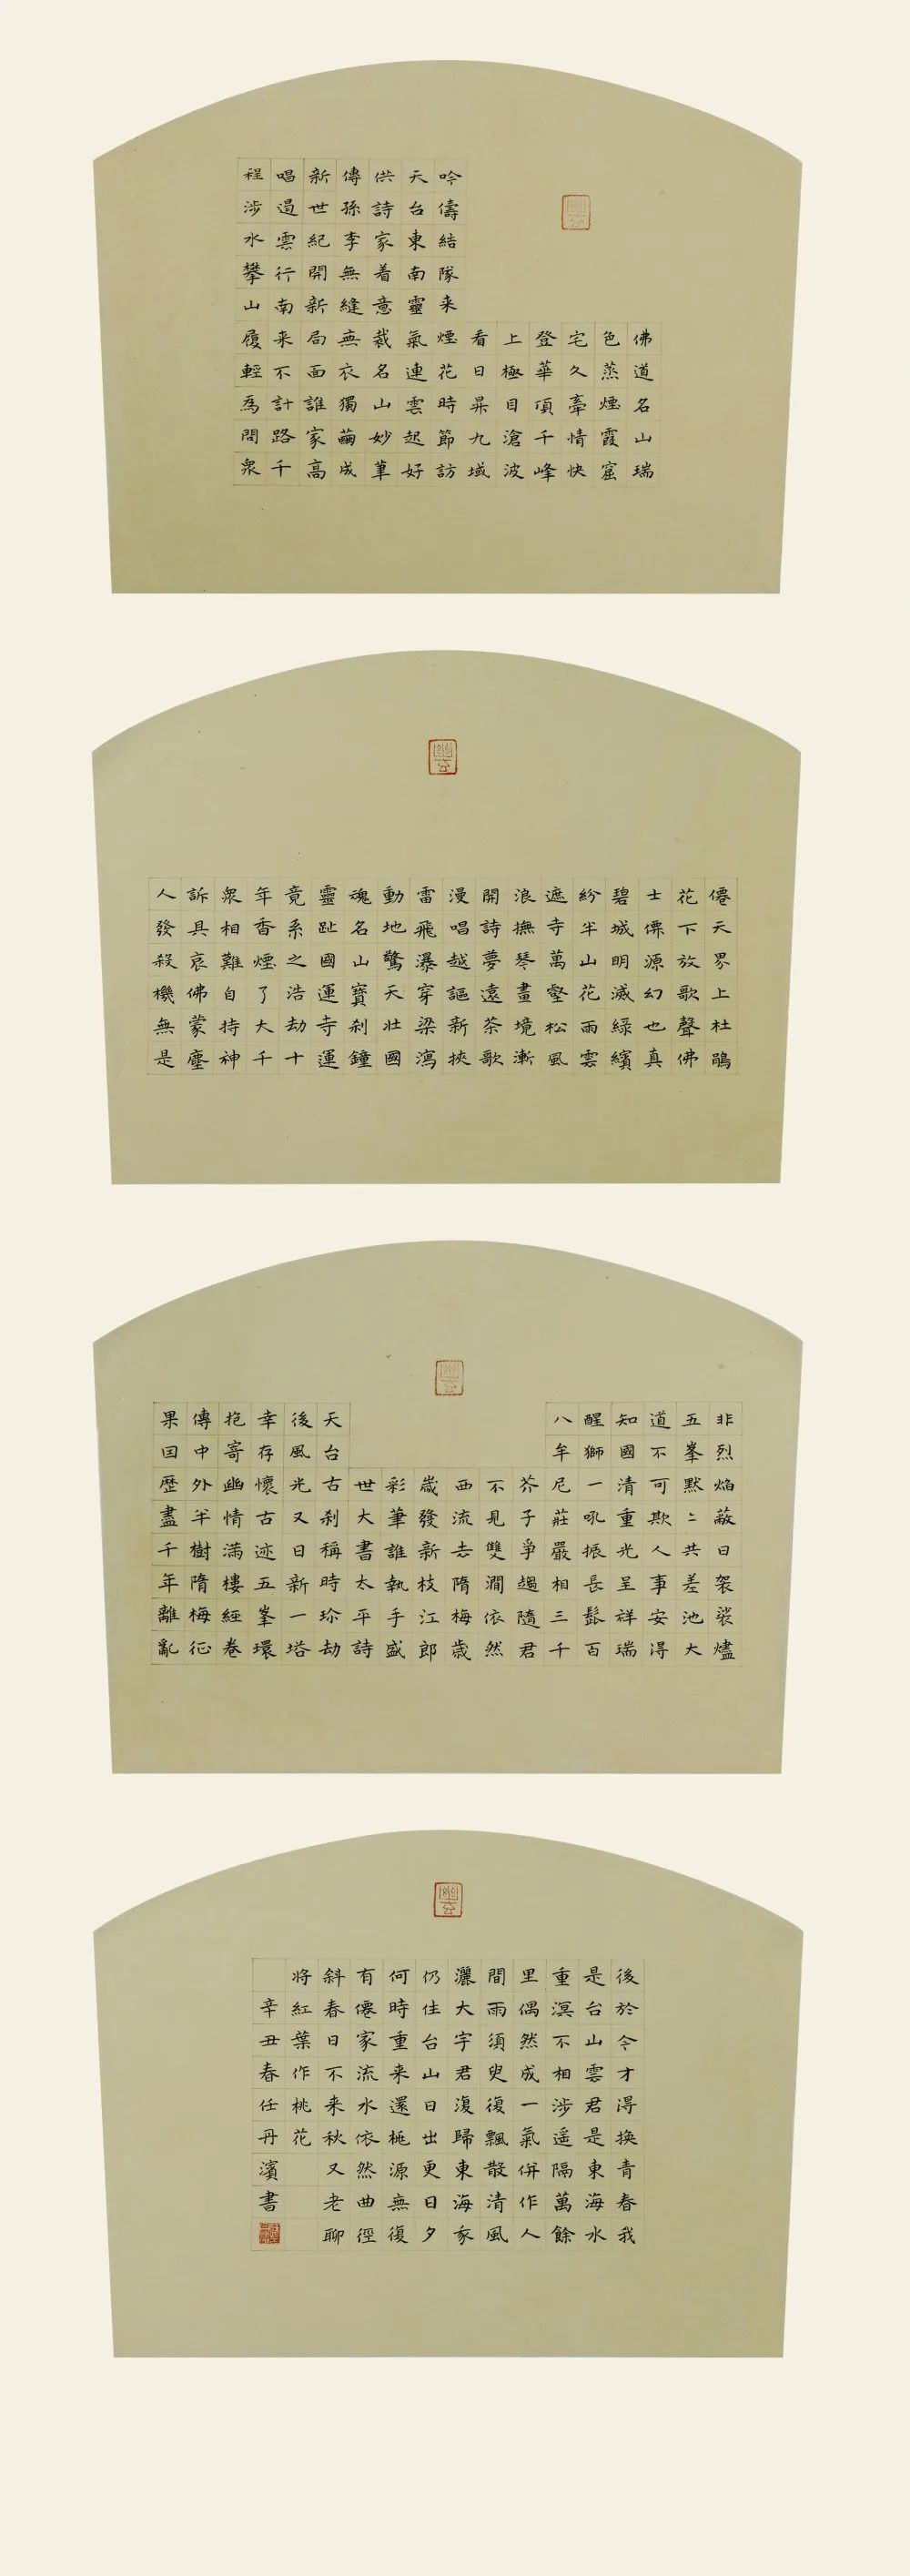 佛道名山瑞
色蒸煙霞窟
宅久牽情快
登華頂千峰
上極目滄波
看日昇九域
吟儔結隊来煙花時節訪
天台東南靈氣連雲起好
供詩家着意裁名山妙筆
傳孫李無縫無衣獨繭成
新世紀開新局面誰家高
唱遏雲行南来不計路千
程涉水攀山履輕爲問衆
僊天界上杜鵑
花下放歌聲佛
士僳源幻也真
碧城明滅綠繽
紛半山花雨雲
遮寺萬壑松風
浪撫琴畫境漸
開詩夢遠茶歌
漫唱越謳新挾
雷飛瀑穿梁瀉
動地驚天壯國
魂名山寶刹鐘
靈趾國運寺運
竟系之浩劫十
年香煙了大千
衆相難自持神
訴具哀佛蒙塵
人發殺機無是
非烈焰蔽日袈裟燼
五峯黙〻共差池大
道不可欺人事安得
知國清重光呈祥瑞
醒獅一吼振長髭百
八牟尼莊嚴相三千
芥子爭趨隨君
不見雙澗依然
西流去隋梅歲
歲發新枝江郎
彩筆誰執手盛
世大書太平詩
天台古刹稱時珍劫
後風光又日新一塔
幸存懷古迹五峯環
抱寄幽情滿樓經卷
傳中外半樹隋梅征
果囙歷盡千年離亂
後於今才得換青春我
是台山雲君是東海水
重溟不相涉遥隔萬餘
里偶然成一氣併作人
間雨須臾復飄散清風
灑大宇君復歸東海家
仍住台山日出更日夕
何時重来還桃源無復
有僊家流水依然曲徑
斜春日不来秋又老聊
將紅葉作桃花
辛丑春任丹濱書